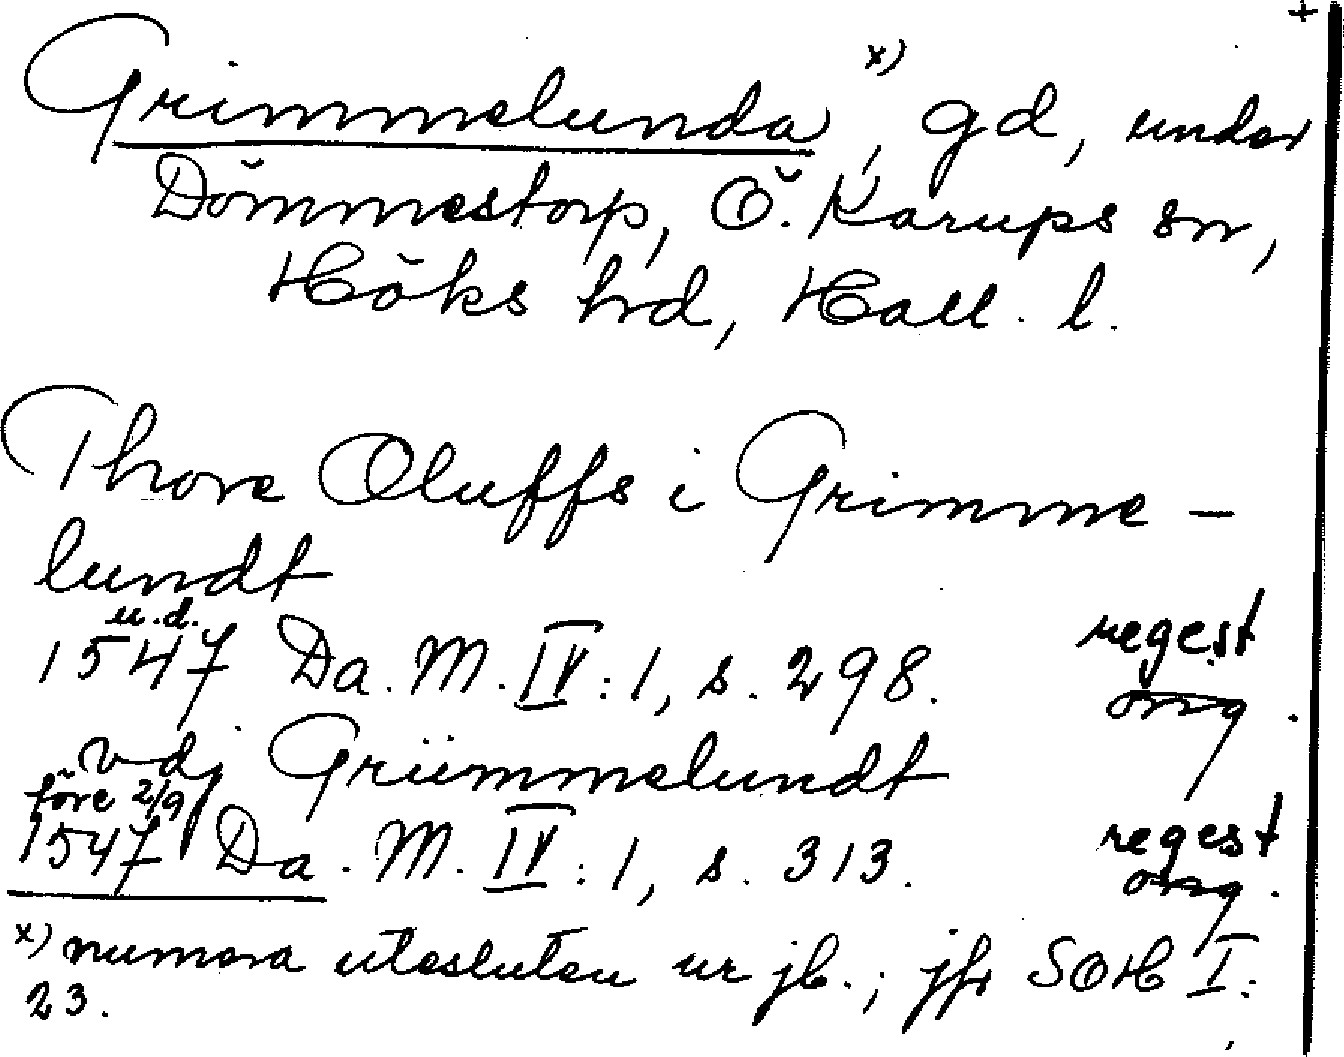 +
Grimmelunda x), gd, under
Dömmestorp, Ö. Karups sn,
Höks hd, Hall. l.
Thore Oluffs i Grimme-
lundt
u.d.
1547 Da. M. IV: 1, s. 298. regest
orig.
vdj Grümmelundt
före 2/9
1547 Da. M. IV: 1, s. 313. regest
orig.
x) numera utesluten ur jb.; jfr SOH I:
23.